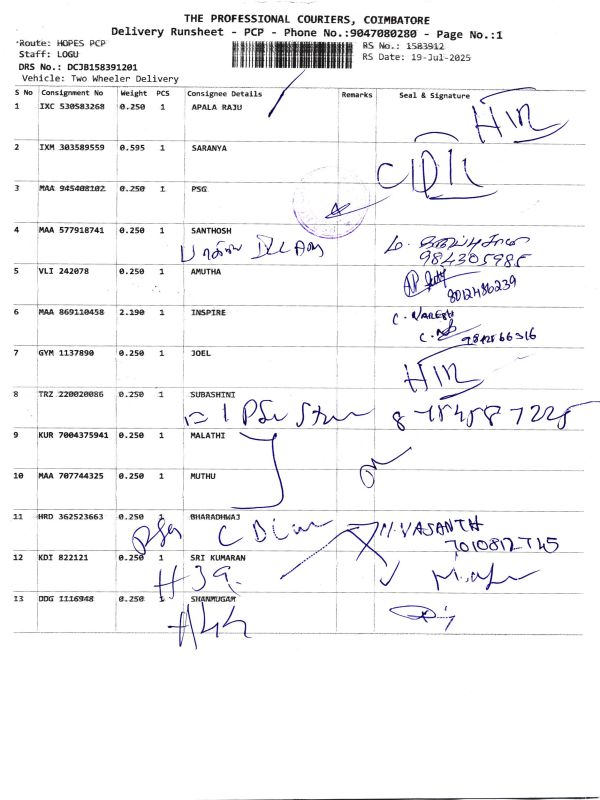 THE PROFESSIONAL COURIERS, COIMBATORE
Delivery Runsheet - PCP - Phone No.:9047080280 - Page No.:1
Route: HOPES PCP
RS No.: 1583912
Staff: LOGU
RS Date: 19-Jul-2025
DRS No.: DCJB158391201
Vehicle: Two Wheeler Delivery
S No Consignment No Weight PCS Consignee Details Remarks Seal & Signature
1 IXC 530583268 0.250 1 APALA RAJU
2 IXM 303589559 0.595 1 SARANYA
3 MAA 945408102 0.250 1 PSG
4 MAA 577918741 0.250 1 SANTHOSH
984305985
5 VLI 242078 0.250 1 AMUTHA
8012486239
6 MAA 869110458 2.190 1 INSPIRE C. NARESH
9842566316
7 GYM 1137890 0.250 1 JOEL
8 TRZ 220020086 0.250 1 SUBASHINI
9 KUR 7004375941 0.250 1 MALATHI
10 MAA 707744325 0.250 1 MUTHU
11 HRD 362523663 0.250 1 BHARADHWAJ
M. VASANTH
7010812745
12 KDI 822121 0.250 1 SRI KUMARAN
H39.
13 DDG 1116948 0.250 1 SHANMUGAM
H44